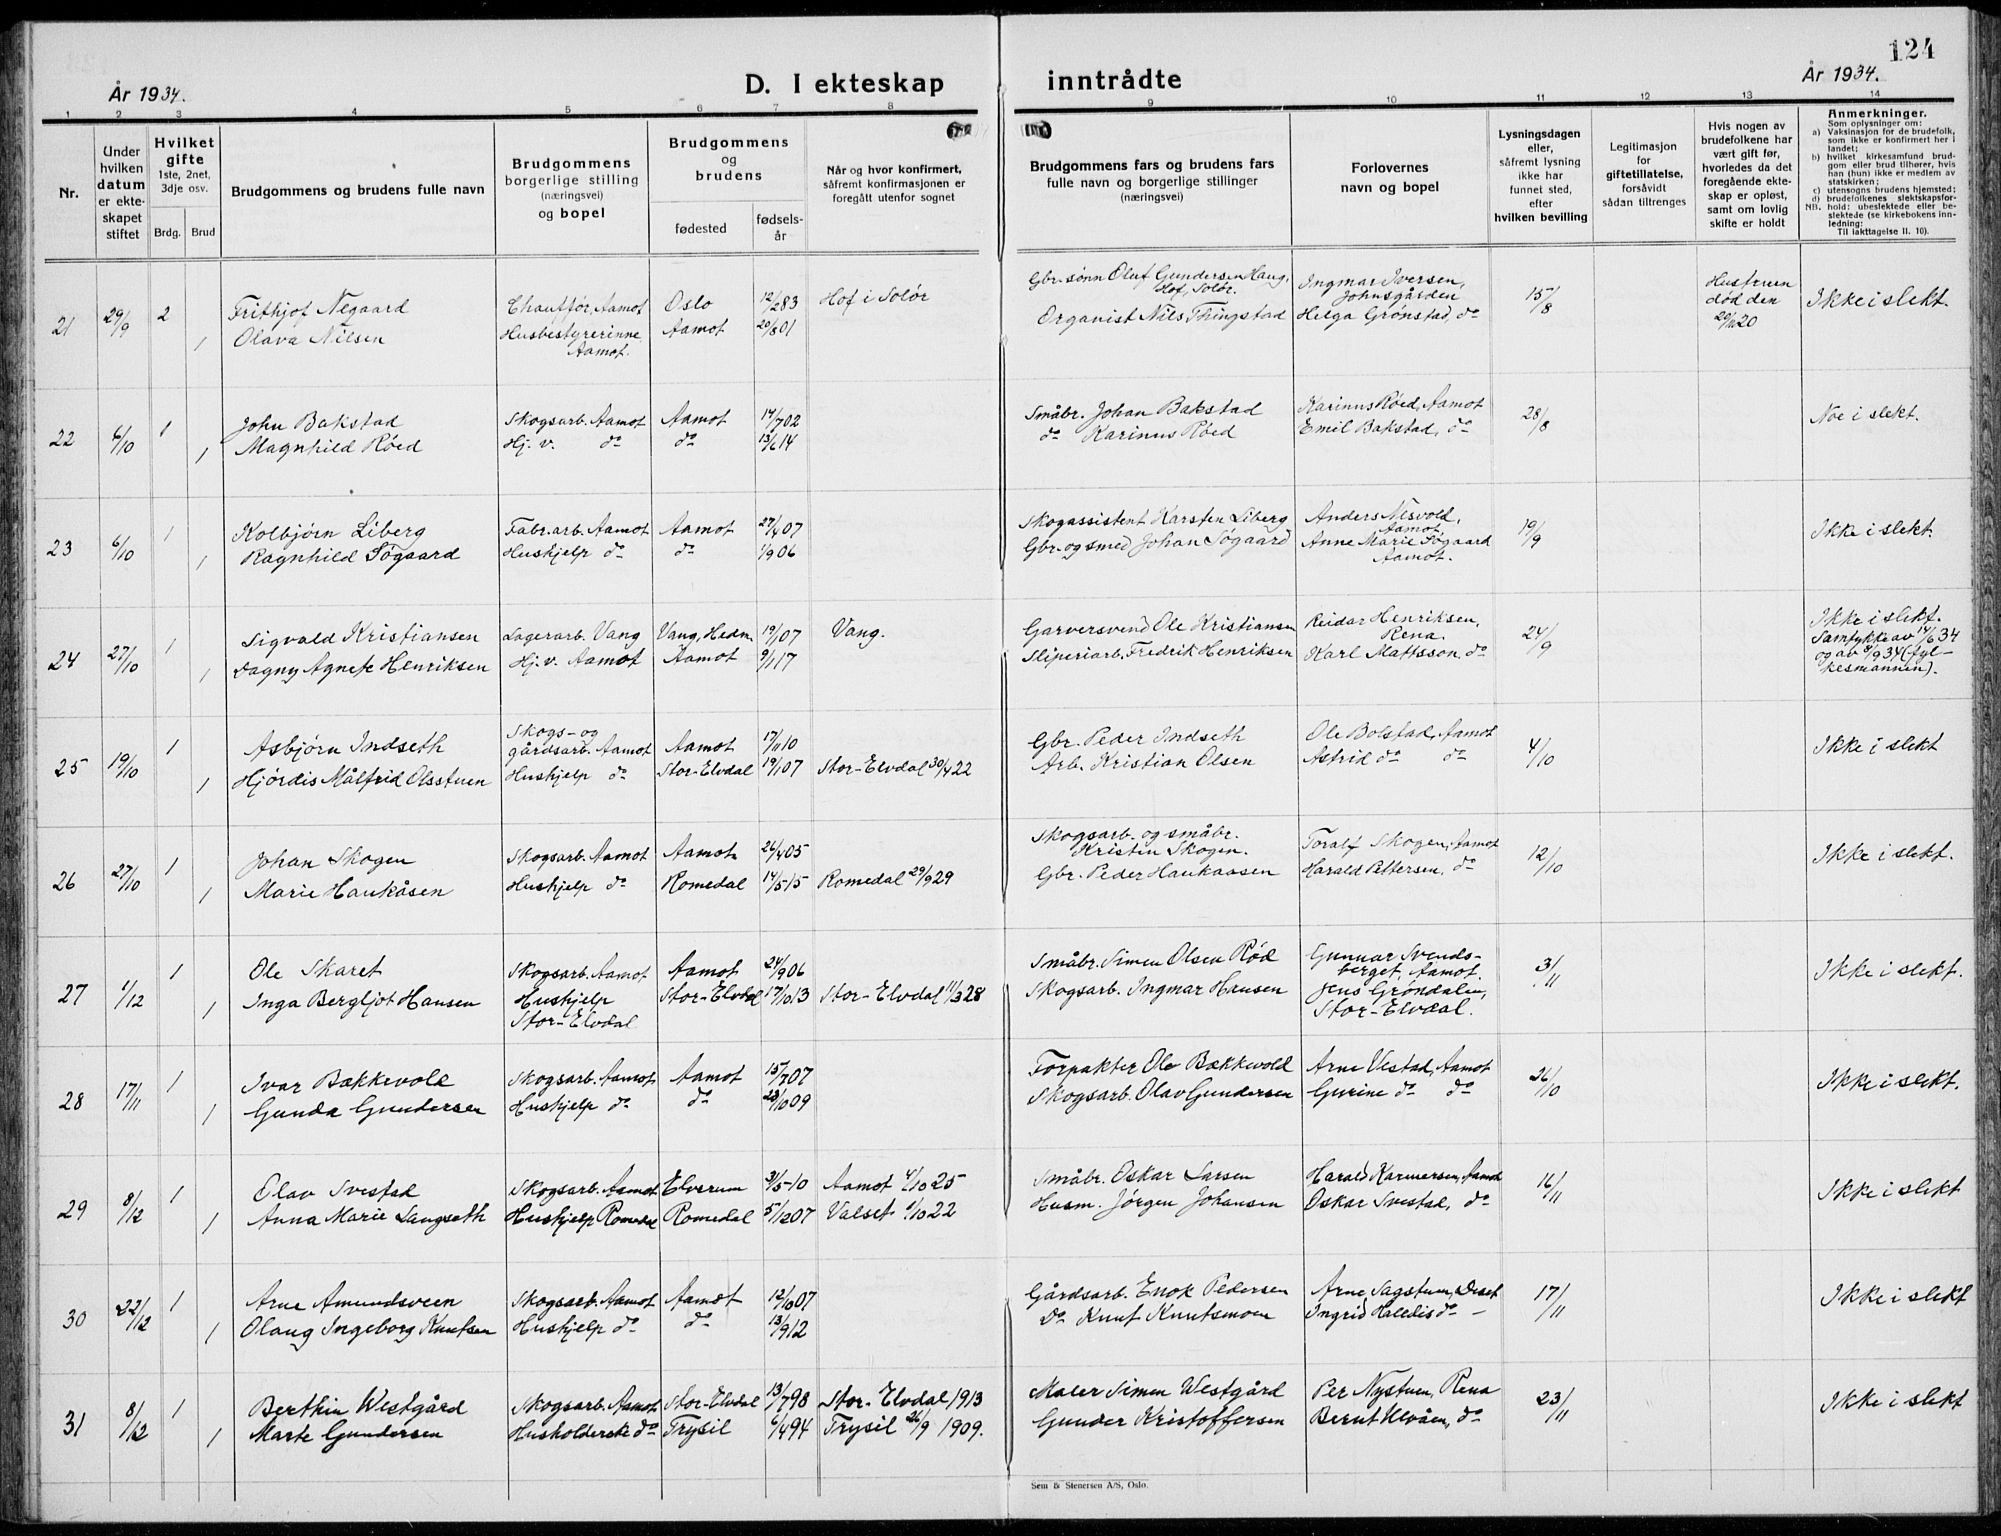 124
År 1934.
D. I ekteskap inntrådte
År 1934.
1 2 3 4 5 6 7 8 9 10 11 12 13 14
Nr.
Under hvilken datum er ekte- skapet stiftet
Hvilket gifte
1ste, 2net, 3dje osv.
Brdg. Brud
Brudgommens og brudens fulle navn
Brudgommens borgerlige stilling (næringsvei) og bopel
Brudgommens og brudens
fødested
fødsels- år
Når og hvor konfirmert, såfremt konfirmasjonen er foregått utenfor sognet
Brudgommens fars og brudens fars fulle navn og borgerlige stillinger (næringsvei)
Forlovernes navn og bopel
Lysningsdagen eller, såfremt lysning ikke har funnet sted, efter hvilken bevilling
Legitimasjon for giftetillatelse, forsåvidt sådan tiltrenges
Hvis nogen av brudefolkene har vært gift før, hvorledes da det foregående ekte- skap er opløst, samt om lovlig skifte er holdt
Anmerkninger.
Som oplysninger om:
a) Vaksinasjon for de brudefolk, som ikke er konfirmert her i landet;
b) hvilket kirkesamfund brud- gom eller brud tilhører, hvis han (hun) ikke er medlem av statskirken;
c) utensogns brudens hjemsted;
d) brudefolkenes slektskapsfor- hold: ubeslektede eller be- slektede (se kirkebokens inn- ledning;
NB. Til iakttagelse II. 10).
21 29/9 2 Frithjof Negaard Chauffør, Aamot Oslo 12/2 83 Hof i Solør Gbr.sønn Oluf Gundersen Haug, Hof, Solør. Ingmar Iversen, Johnsgården 15/8 Hustruen død den 29/11 20 Ikke i slekt
1 Olava Nilsen Husbestyrerinne Aamot. Aamot 20/8 01 Organist Nils Thingstad Helga Grønstad, do
22 6/10 1 John Bakstad Skogsarb. Aamot Aamot 14/7 02 Småbr. Johan Bakstad Karinus Røed, Aamot 28/8 Noe i slekt.
1 Magnhild Røed Hj. v. do do 13/6 14 do Karinus Røed Emil Bakstad, do
23 6/10 1 Kolbjørn Liberg Fabr.arb. Aamot Aamot 27/4 07 Skogassistent Karsten Liberg Anders Nesvold, Aamot 19/9 Ikke i slekt.
1 Ragnhild Søgaard Huskjelp do do 1/9 06 Gbr. og smed Johan Søgaard Anne Marie Søgaard Aamot.
24 27/10 1 Sigvald Kristiansen Lagerarb. Vang Vang, Hedm. 19/1 07 Vang. Garversvend Ole Kristiansen Reidar Henriksen, Rena. 24/9 Ikke i slekt. Samtykke av 14/6 34 og av 8/9 34 (fyl- kesmannen).
1 Dagny Agnete Henriksen Hj. v. Aamot Aamot 9/1 17 Sliperiarb. Fredrik Henriksen Karl Mattsson, do
25 19/10 1 Asbjørn Indseth Skogs- og gårdsarb. Aamot Aamot 17/11 10 Gbr. Peder Indseth Ole Bolstad, Aamot 4/10 Ikke i slekt
1 Hjørdis Målfrid Olsstuen Huskjelp do Stor-Elvdal 19/1 07 Stor-Elvdal 30/4 22 Arb. Kristian Olsen Astrid do do
26 27/10 1 Johan Skogen Skogsarb. Aamot Aamot 26/4 05 Skogsarb. og småbr. Kristen Skogen. Toralf Skogen, Aamot 12/10 Ikke i slekt.
1 Marie Haukåsen Huskjelp do Romedal 14/5 15 Romedal 29/9 29 Gbr. Peder Haukaasen Harald Pettersen, do
27 1/12 1 Ole Skaret Skogsarb. Aamot Aamot 24/9 06 Småbr. Simen Olsen Rød Gunnar Svends- berget, Aamot. 3/11 Ikke i slekt.
1 Inga Bergljot Hansen Huskjelp Stor-Elvdal Stor-Elvdal 17/10 13 Stor-Elvdal 11/3 28 Skogsarb. Ingmar Hansen Jens Grøndalen, Stor-Elvdal.
28 17/11 1 Ivar Bækkevold Skogsarb. Aamot Aamot 15/7 07 Forpakter Ole Bækkevold Arne Vestad, Aamot 26/10 Ikke i slekt.
1 Gunda Gundersen Huskjelp do do 23/10 09 Skogsarb. Olav Gundersen Gurine do do
29 8/12 1 Olav Svestad Skogsarb. Aamot Elverum 31/5 10 Aamot 4/10 25 Småbr. Oskar Larsen Harald Karmersen, Aamot 16/11 Ikke i slekt
1 Anna Marie Langseth Huskjelp Romedal Romedal 5/12 07 Valset 1/10 22 Husm. Jørgen Johansen Oskar Svestad, do
30 22/12 1 Arne Amundsveen Skogsarb. Aamot Aamot 12/10 07 Gårdsarb. Enok Pedersen Arne Sagstuen, Deset 17/11 Ikke i slekt
1 Olaug Ingeborg Knutsen Huskjelp do do 13/9 12 Do Knut Knutsmoen Ingrid Halldis do
31 8/12 1 Berthin Westgård Skogsarb. Aamot Stor-Elvdal 13/7 98 Stor-Elvdal 1913 Maler Simen Westgård Per Nystuen, Rena 23/11 Ikke i slekt
1 Marte Gundersen Husholderske do Trysil 6/4 94 Trysil 26/9 1909. Gunder Kristoffersen Bernt Ulvåen, do
Sem & Stenersen A/S, Oslo.